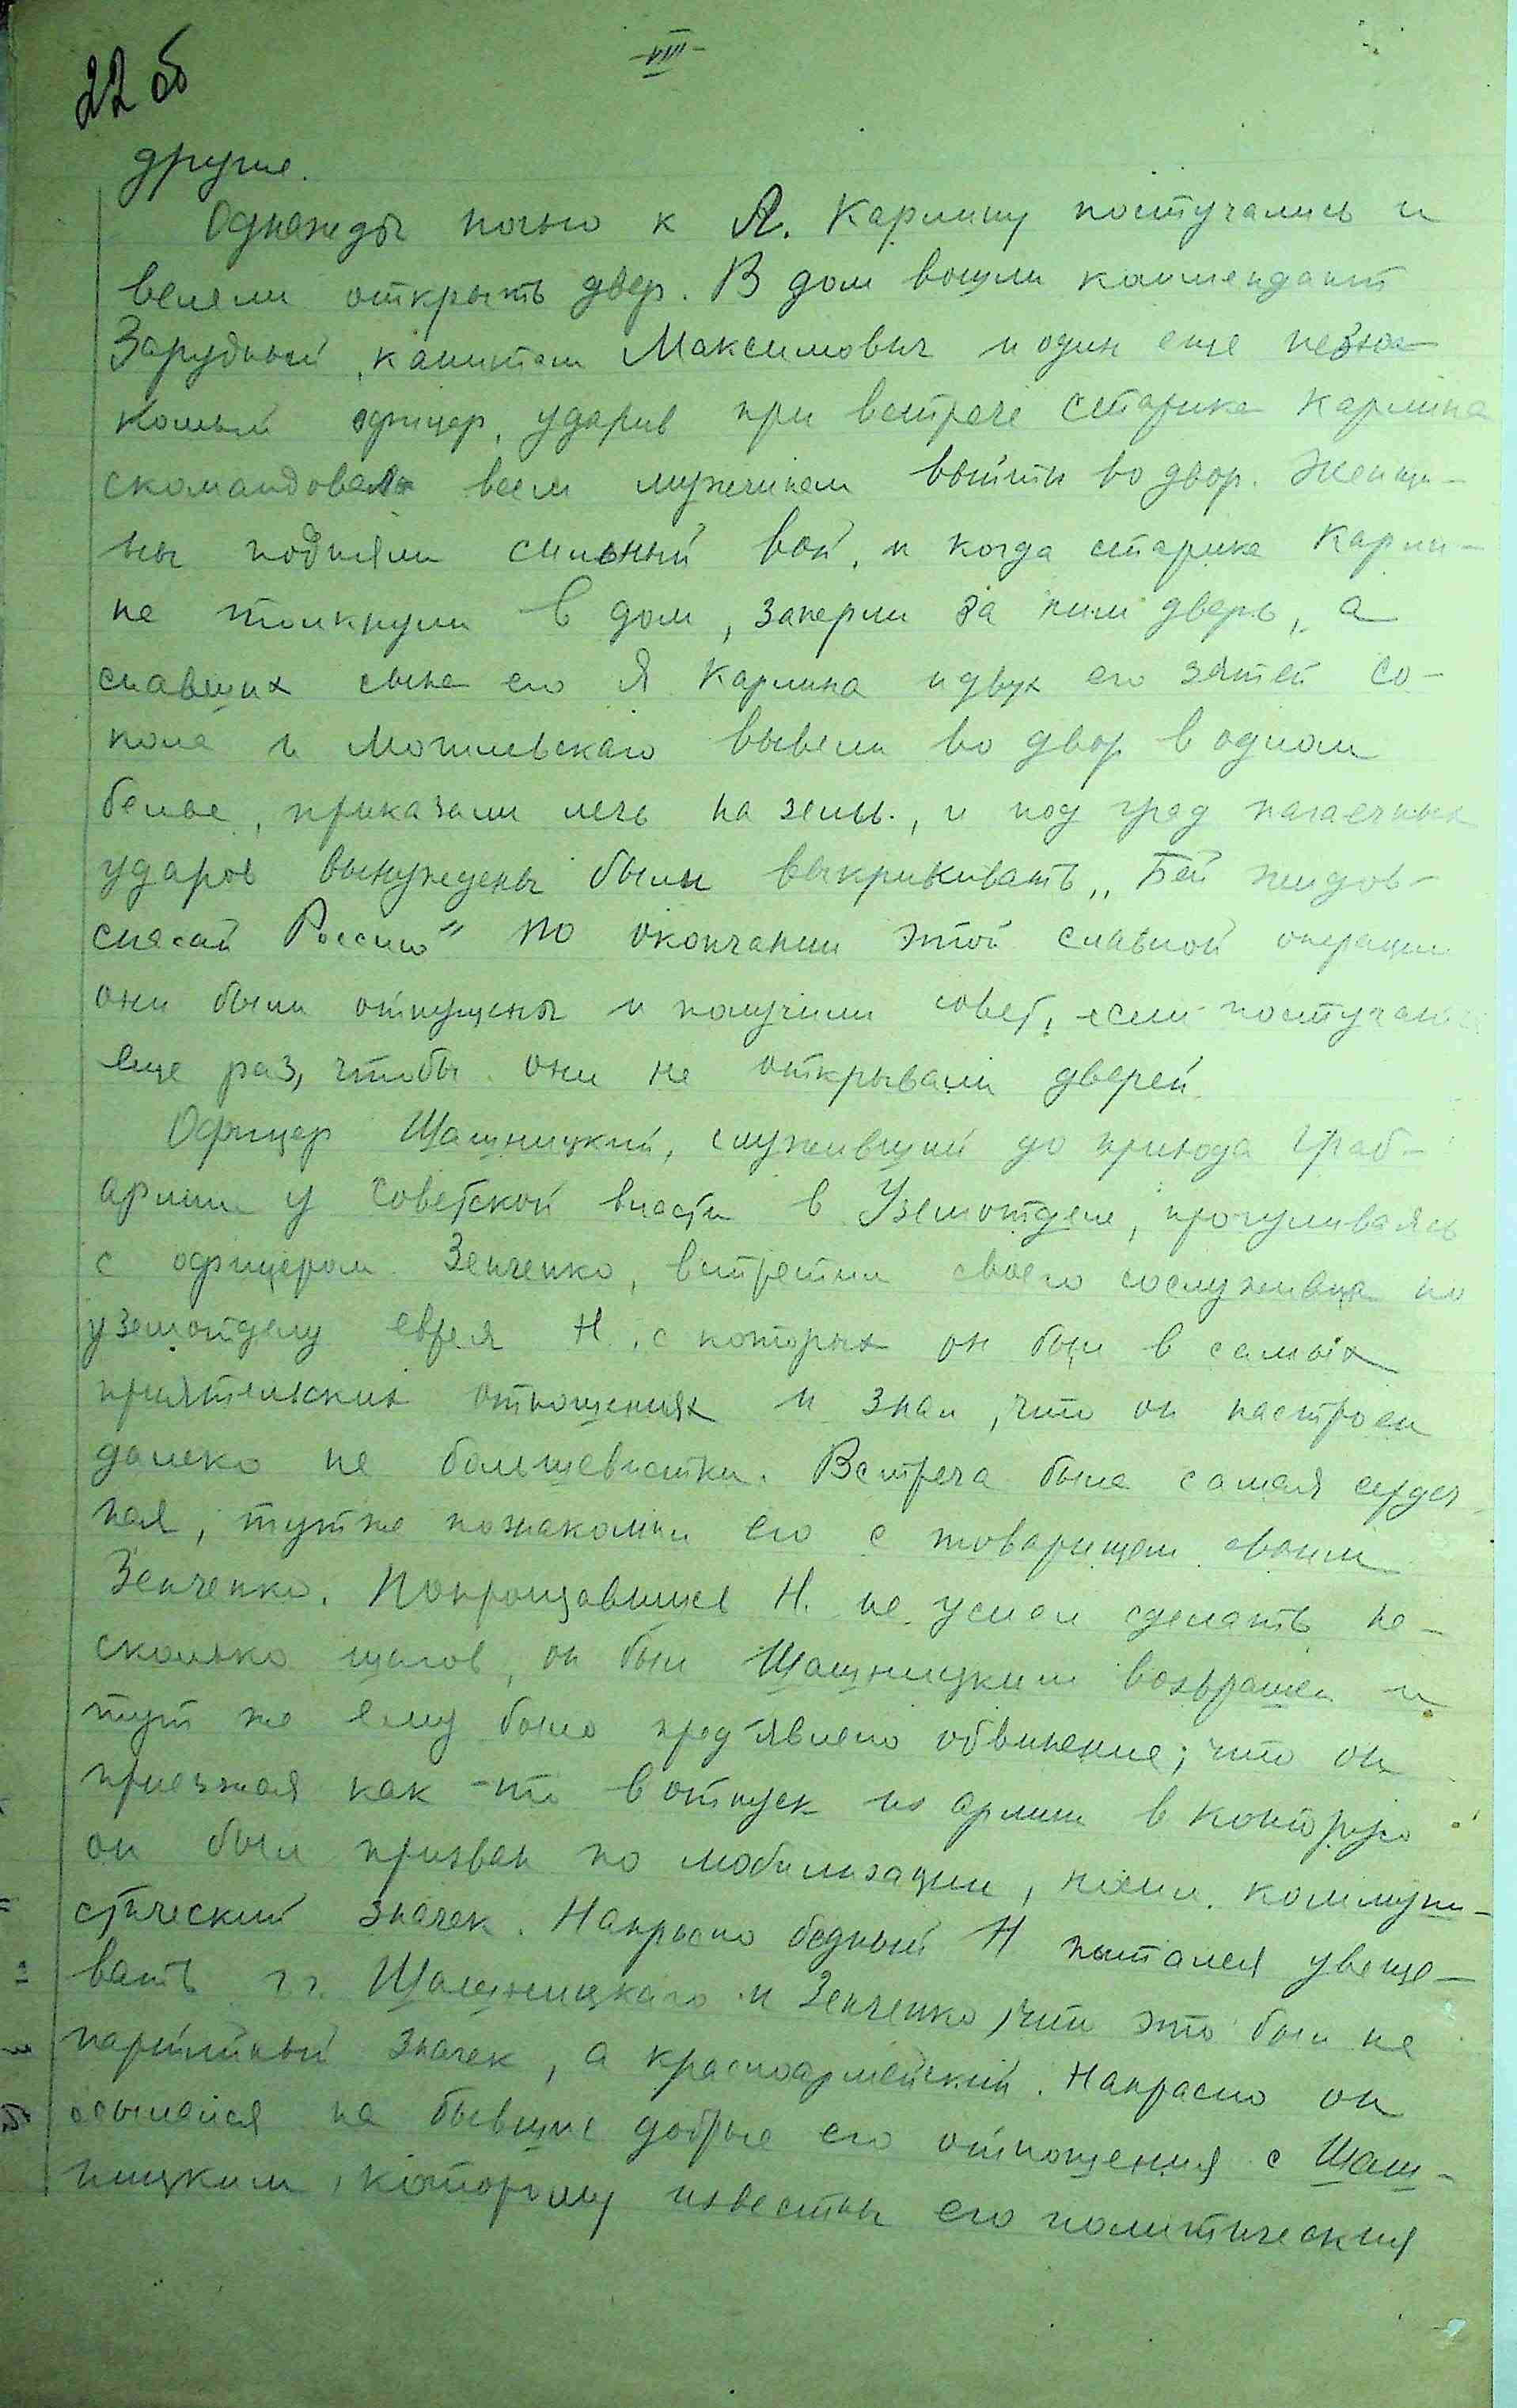 22 об
VIII
другие.
Однажды ночью к Я. Карлину постучались и
велели открыть двер. В дом вошли коммендант
Зарудный, капитан Максимович и один еще незна-
комый офицер, ударив при встрече старика Карлина
скомандовали всем мужчинам выйти во двор. Женщи-
ны подняли сильный вой, и когда старика Карли-
на толкнули в дом, заперли за ним дверь, а
спавших сына его Я Карлина и двух его зятей Со-
кола и Могилевскаго вывели во двор в одном
белье, приказали лечь на землю, и под град нагаечных
ударов вынуждены были выкрикивать „Бей жидов-
спасай Россию" По окончании этой славной операции
они были отпущены и получили совет, если постучат
еще раз, чтобы они не открывали дверей.
Офицер Шашницкий, служивший до прихода Граб-
армии у Советской власти в Уземотделе, прогуливаясь
с офицером Зенченко, встретил своего сослуживца по
уземотделу еврея Н., с которых он был в самых
приятельских отношениях и знал, что он настроен
далеко не большевистки. Встреча была самая сердеч-
ная, тут же познакомил его с товарищем своим
Зенченко. Попрощавшись Н. не успел сделать не-
сколько шагов, он был Шашницким возвращен и
тут же ему было пред'явлено обвинение, что он
приезжая как-то в отпуск из армии в которую
он был призван по мобилизации, носил коммуни-
стический значек. Напрасно бедный Н пытался увеще-
вать г.г. Шашницкаго и Зенченко, что это был не
партийный значек, а красноармейский. Напрасно он
ссылался на бывшие добрые его отношения с Шаш-
ницким, которому известны его политическия